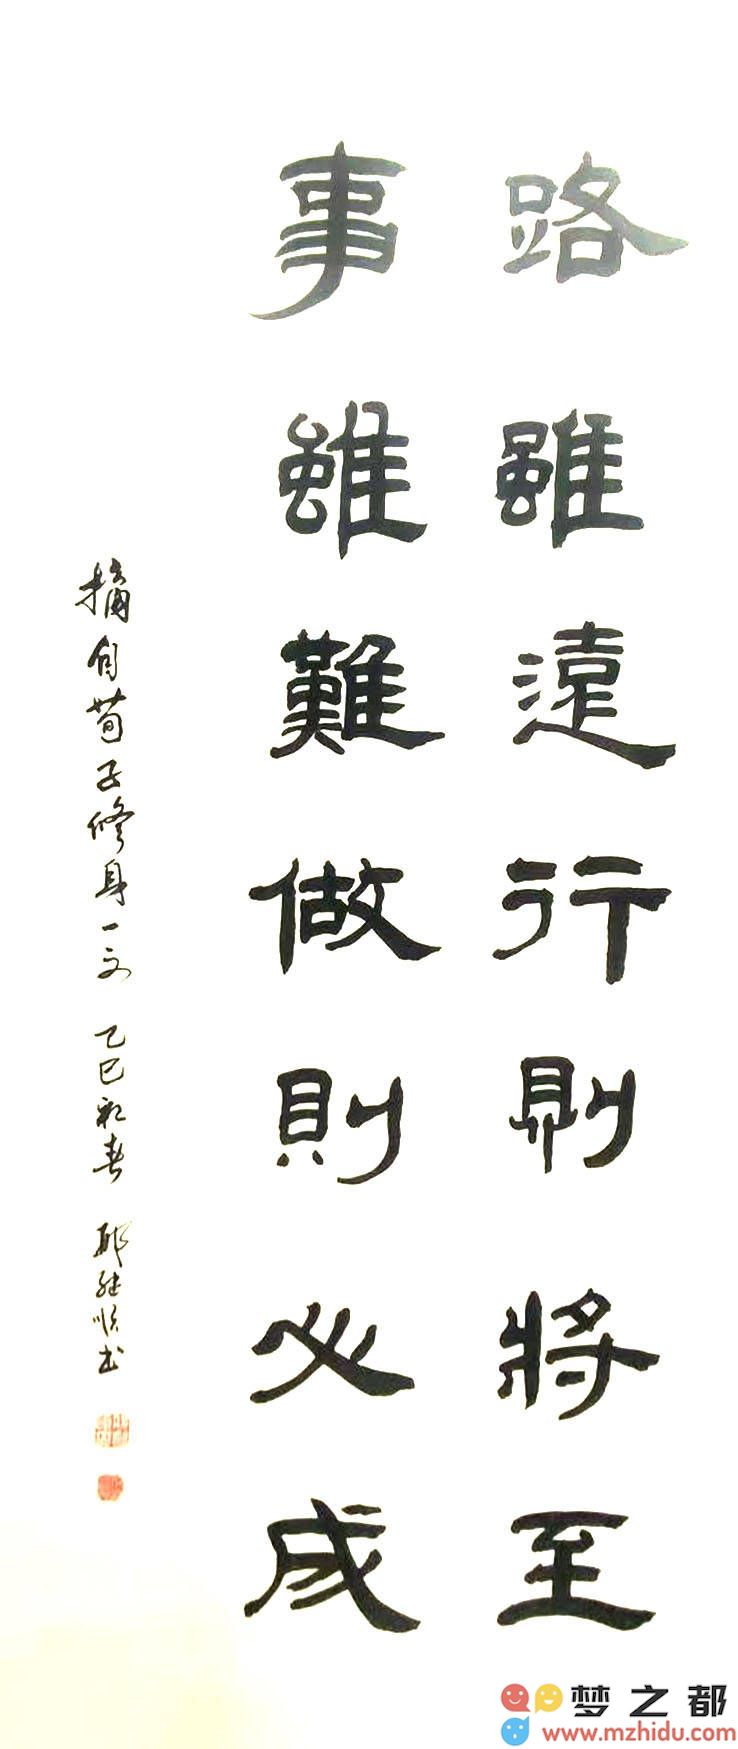 路雖遠行則將至
事雖難做則必成
摘自荀子修身一文 乙巳初春 邱继顺书
梦之都
www.mzhidu.com